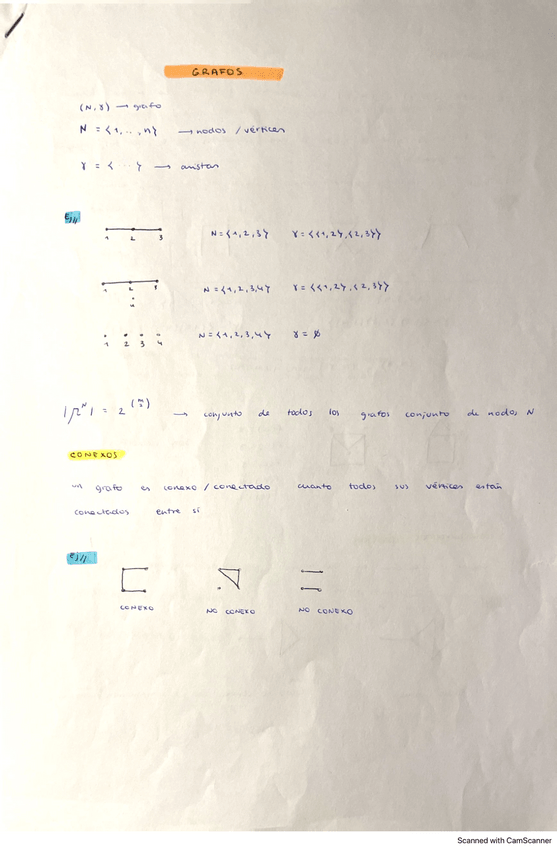 GRAFOS
(N, γ) → grafo
N = {1, .., n} → nodos / vértices
γ = { ... } → aristas
Ej//
1 2 3 N = {1, 2, 3} γ = {{1, 2}, {2, 3}}
1 2 3 N = {1, 2, 3, 4} γ = {{1, 2}, {2, 3}}
4
1 2 3 4 N = {1, 2, 3, 4} γ = ∅
= 2 → conjunto de todos los grafos conjunto de nodos N
CONEXOS
un grafo es conexo / conectado cuanto todos sus vértices están
conectados entre sí
Ej//
CONEXO NO CONEXO NO CONEXO
Scanned with CamScanner